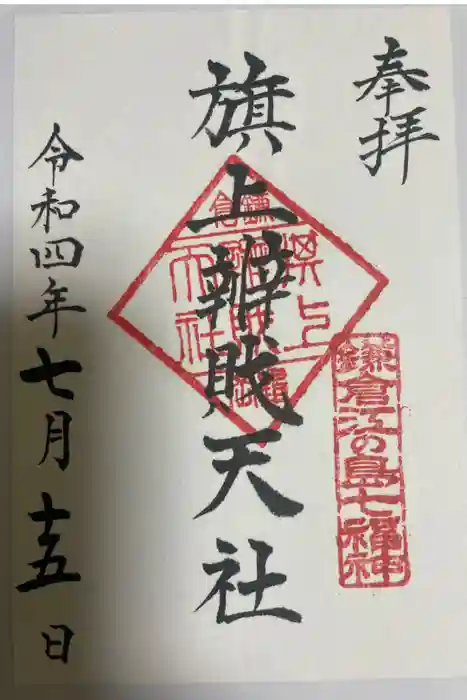 奉拝
旗上辨賊天社
鎌倉江の島七福神
令和四年七月十五日